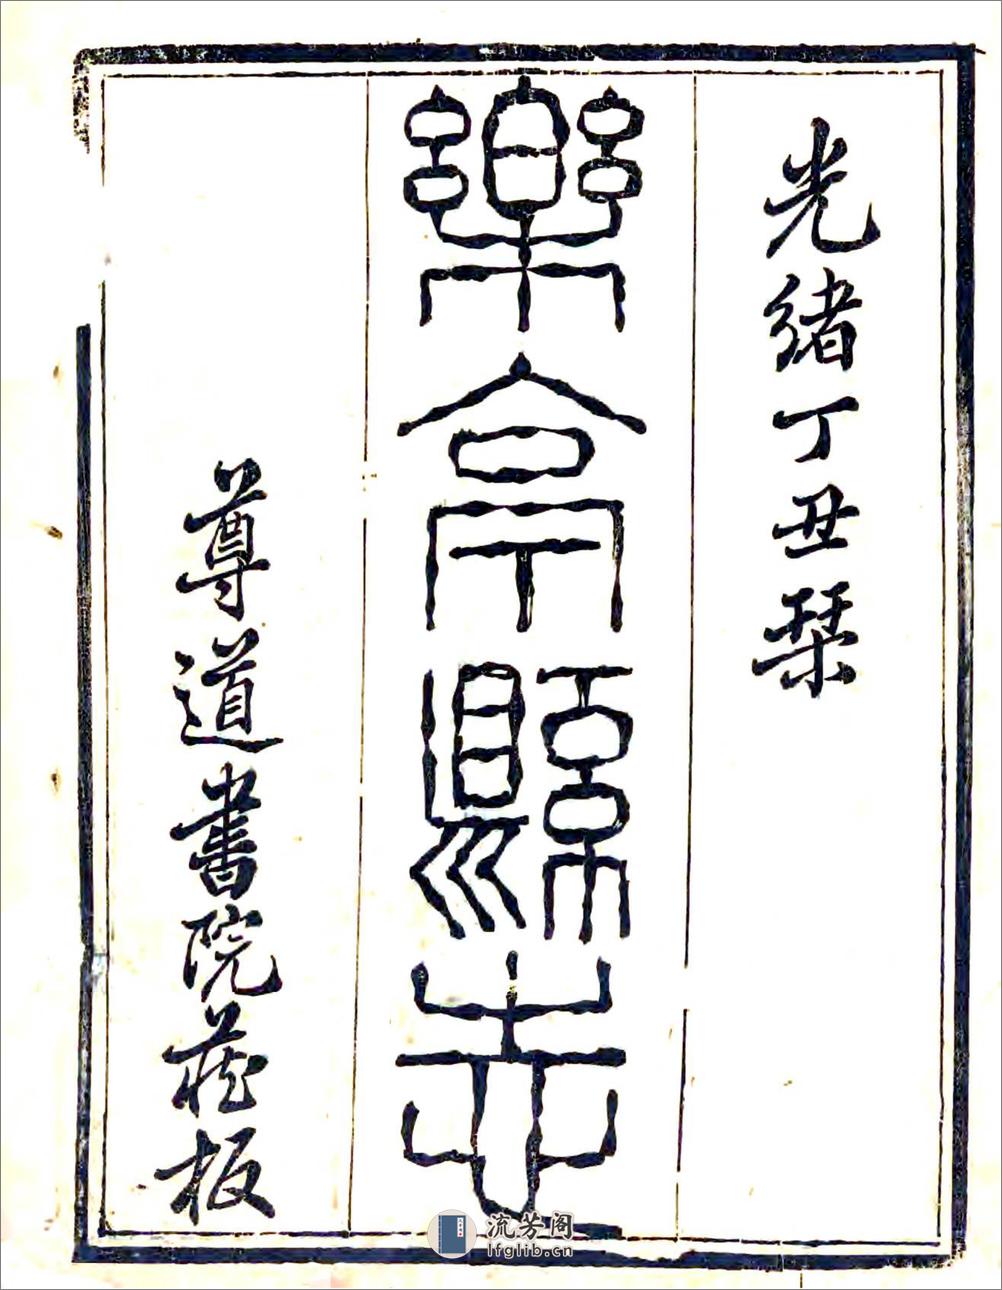 光緒丁丑栞
樂亭縣志
尊道書院藏板
流芳阁
lfglib.cn